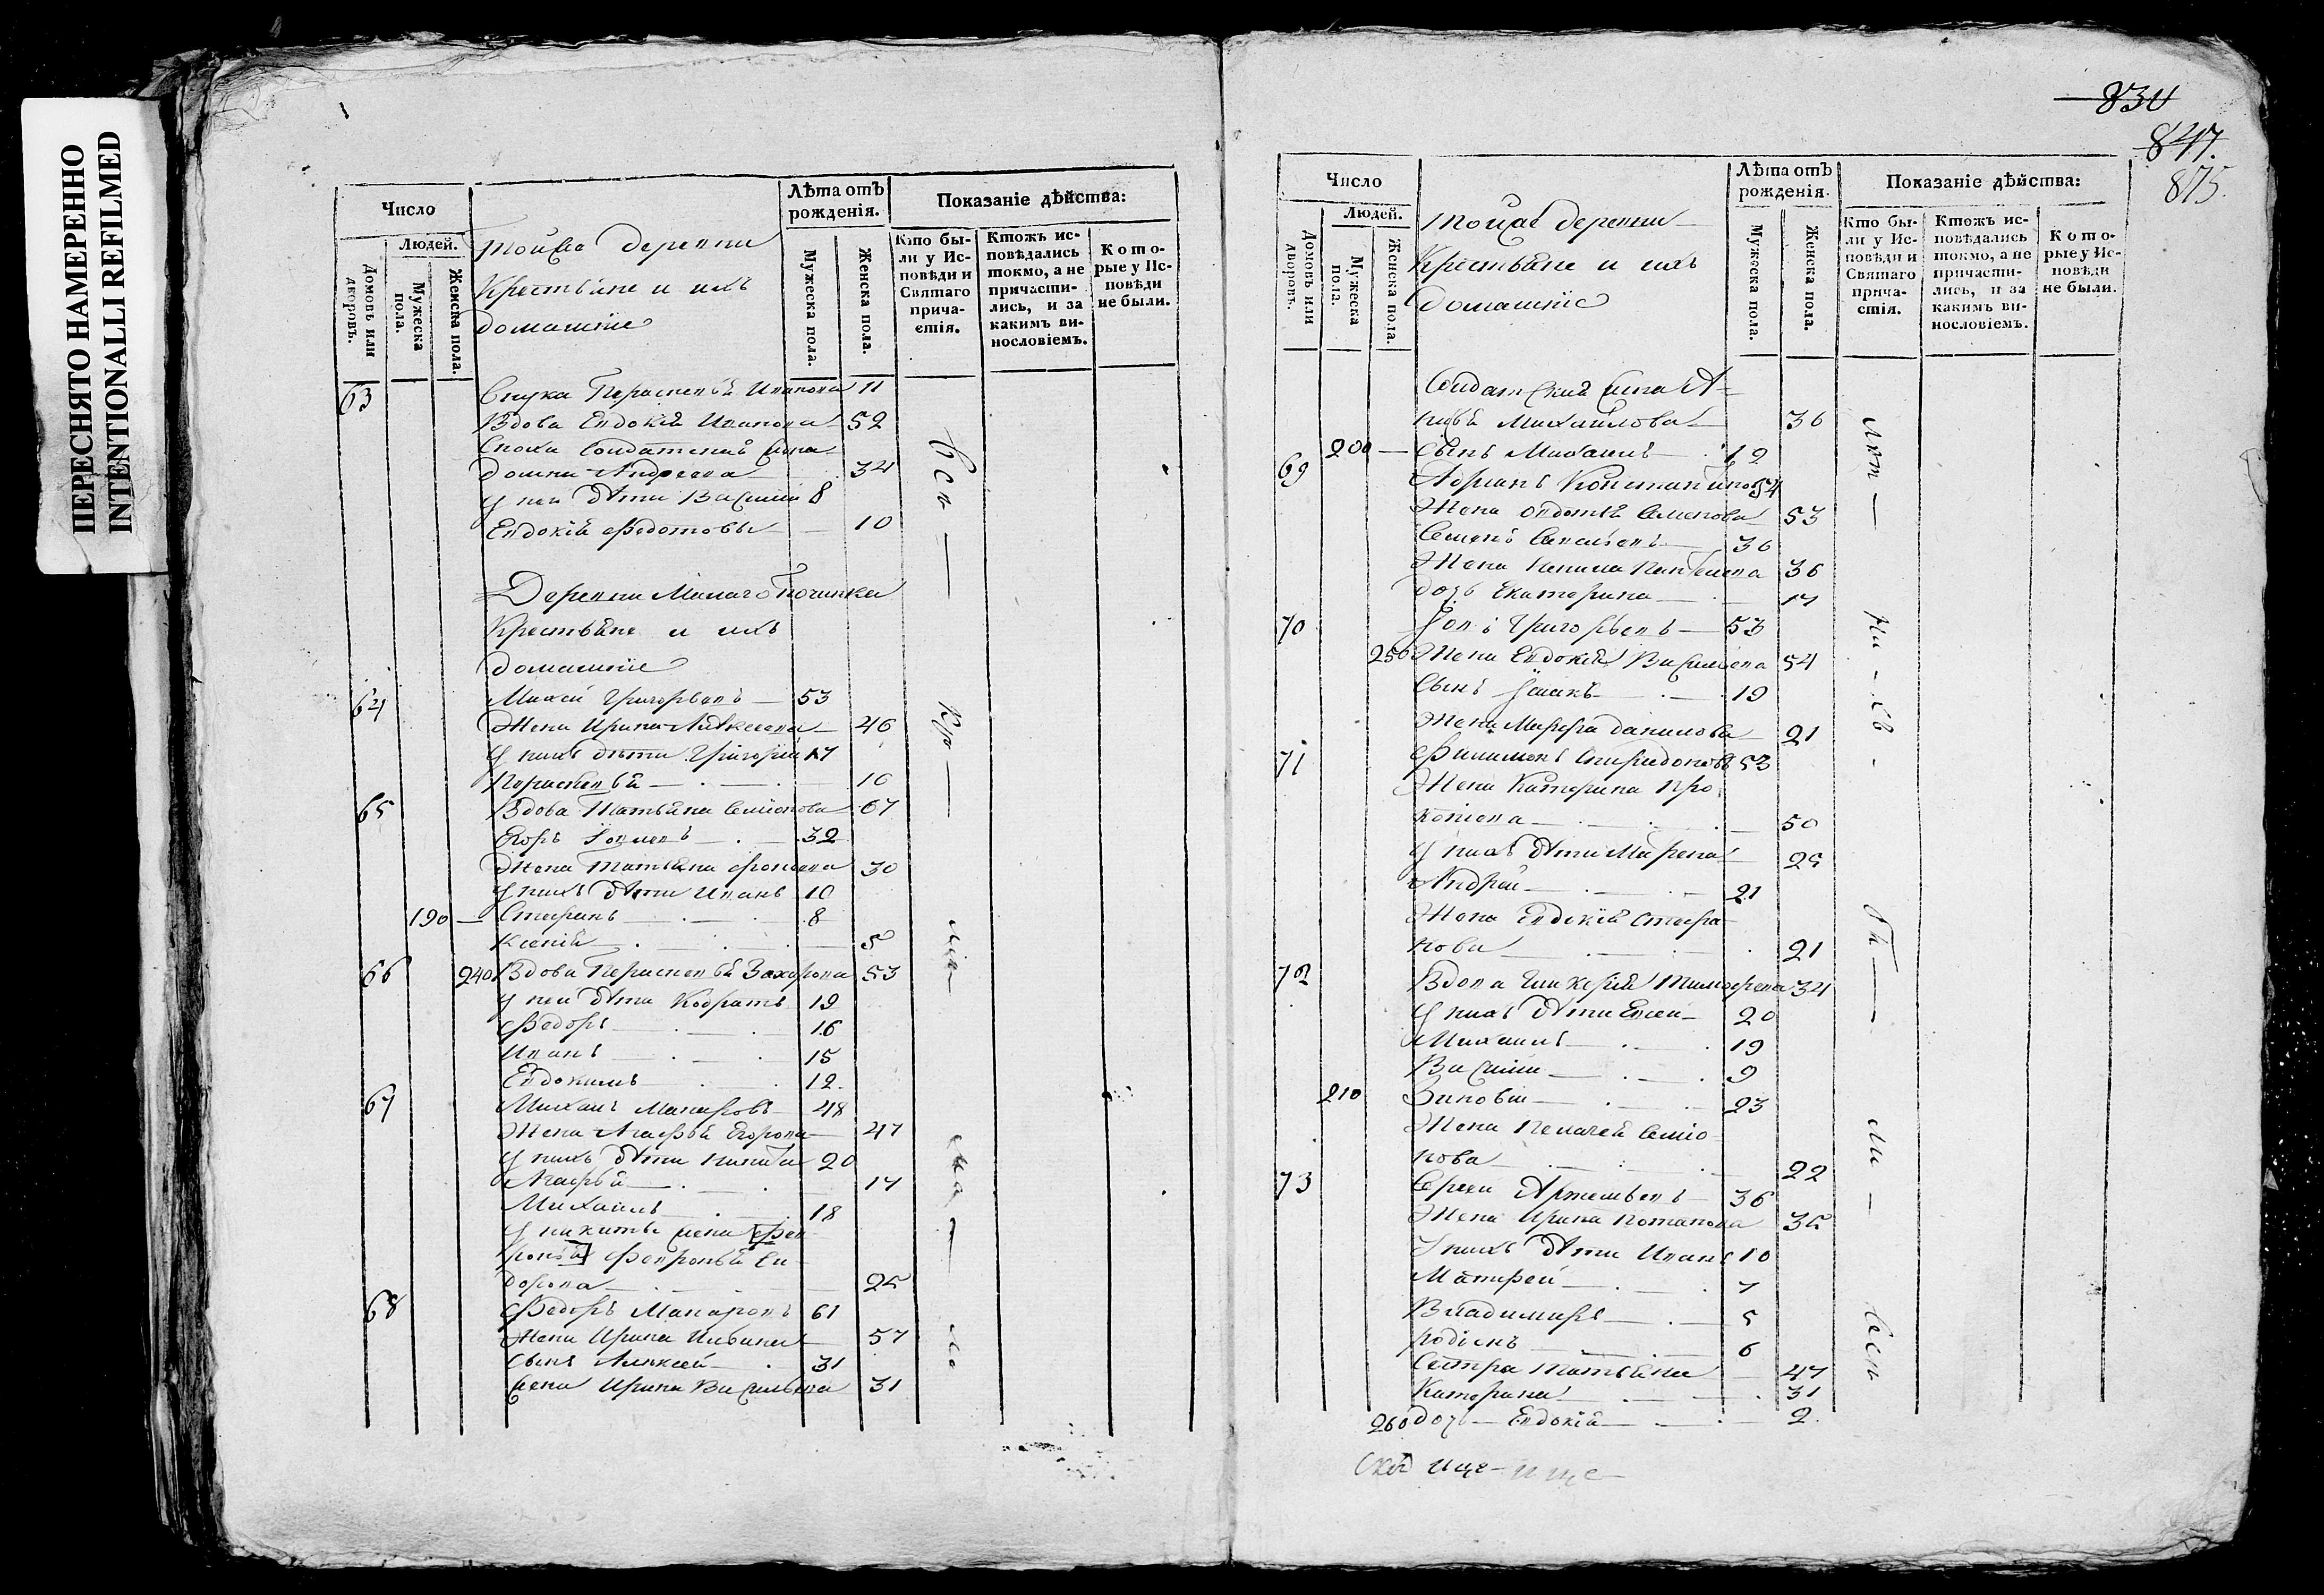 ПЕРЕСНЯТО НАМЕРЕННО
INTENTIONALLI REFILMED
Число
Людей.
Домовъ или дворовъ.
Мужеска пола.
Женска пола.
тойже деревни
Крестьяне и ихъ
домашніе
Лѣта отъ рожденія.
Мужеска пола.
Женска пола.
Показаніе дѣйства:
Кто бы-
ли у Ис-
повѣди и
Святаго
прича-
стія.
Ктожъ ис-
повѣдались
токмо, а не
причасти-
лись, и за
какимъ ви-
нословіемъ.
Кото-
рые у Ис-
повѣди
не были.
63 Внука Параскевья Иванова 11
Вдова Евдокія Иванова 52
Сноха Солдатская жена
Домна Андреева 34
У неи дѣти Василии 8
Евдокія Федотовы 10
Деревни Малаго Починка
Крестьяне и ихъ
домашніе
64 Михеи Григорьевъ 53
Жена Ирина Алѣксеева 46
У нихъ дѣти Григорій 17
Параскевья 10
65 Вдова Татьяна Семіонова 67
Егоръ 32
Жена Татьяна 30
У нихъ дѣти Иванъ 10
190 Стефанъ 8
Ксенія 5
66 240 Вдова Параскевья Захарова 53
У неи дѣти Кодратъ 19
Федоръ 16
Иванъ 15
Евдокимъ 12
67 Михаилъ Макаровъ 48
Жена Агафья Егорова 47
У нихъ дѣти Никита 20
Агафья 17
Михаилъ 18
У никиты жена Фев
роньй Февронья Си
дорова 25
68 Федоръ Макаровъ 61
Жена Ирина Ильина 57
Сынъ Алѣксей 31
жена Ирина Васильева 31
830
847.
875.
Число
Людей.
Домовъ или дворовъ.
Мужеска пола.
Женска пола.
тойже деревни
Крестьяне и ихъ
домашніе
Лѣта отъ рожденія.
Мужеска пола.
Женска пола.
Показаніе дѣйства:
Кто бы-
ли у Ис-
повѣди и
Святаго
прича-
стія.
Ктожъ ис-
повѣдались
токмо, а не
причасти-
лись, и за
какимъ ви-
нословіемъ.
Кото-
рые у Ис-
повѣди
не были.
Солдатская жена А-
Михаилова 36
200 Сынъ Михаилъ 12
69 Адріанъ Константиновъ 54
Жена Семенова 53
Семенъ Савельевъ 36
Жена 36
дочь Екатерина 17
70 Іовъ Григорьевъ 53
250 Жена Евдокія Васильева 54
Сынъ 19
Жена Марфа данилова 21
71 Филимонъ Спиридоновъ 53
Жена Катерина Про
копіева 50
У нихъ дѣти Марена 25
Андрей 21
Жена Евдокія Стефа
нова 21
72 Вдова Гликерія Тимофеева 34
У нихъ дѣти Евсеи 20
Михаилъ 19
Василии 9
210 Зиновии 23
Жена Пелагея Семіо
нова 22
73 Сергеи Артемьевъ 36
Жена Ирина Потапова 35
У нихъ дѣти Иванъ 10
Матфеи 7
Владимиръ 5
родіонъ 6
Сестра Татьяна 47
Катерина 31
260 дочь Евдокія 2